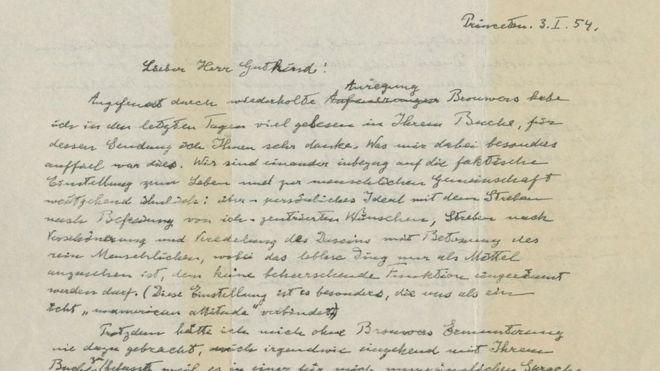 Princeton. 3. I. 54.
Lieber Herr Gutkind!
Anregung
Angefeuert durch wiederholte Brouwers habe
ich in den letzten Tagen viel gelesen in Ihrem Buche, für
dessen Sendung ich Ihnen sehr danke. Was mir dabei besonders
auffiel war dies. Wir sind einander inbezug auf die faktische
Einstellung zum Leben und zur menschlichen Gemeinschaft
weitgehend ähnlich: über-persönliches Ideal mit dem Streben
nach Befreiung von ich-zentrierten Wünschen, Streben nach
Verschönerung und Veredelung des Daseins mit Betonung des
rein Menschlichen, wobei das leblose Ding nur als Mittel
anzusehen ist, dem keine beherrschende Funktion eingeräumt
werden darf. (Diese Einstellung ist es besonders, die uns als ein
echt „unamerican attitude" verbindet.)
Trotzdem hätte ich mich ohne Brouwers Ermunterung
nie dazu gebracht, mich irgendwie eingehend mit Ihrem
weil es in einer für mich unzugänglichen Sprache